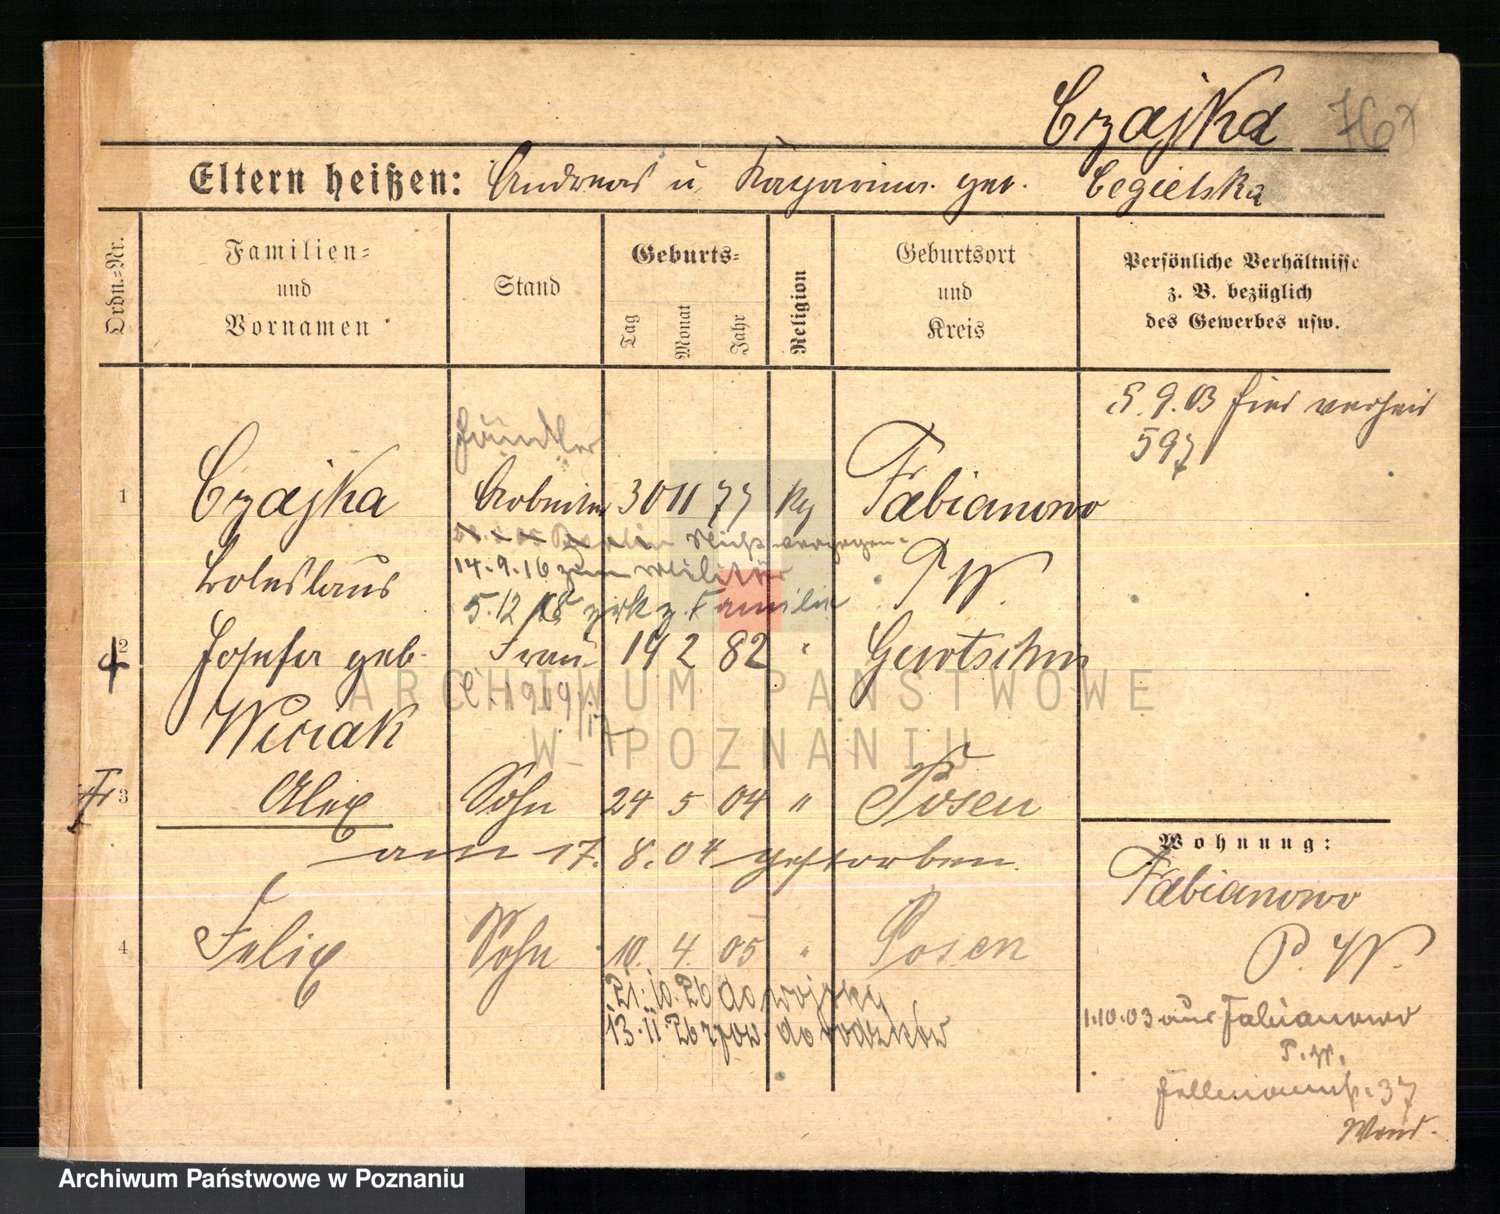 Czajka
Eltern heißen: Andreas u. Katharina geb. Cegielska
Ordn.-Nr.
Familien- und Vornamen
Stand
Geburts-
Tag
Monat
Jahr
Religion
Geburtsort und Kreis
Persönliche Verhältnisse
z. B. bezüglich
des Gewerbes usw.
5.9.03 hier verheir
597
Händler
1 Czajka Arbeiter 30 11 77 kg Fabianowo
Boleslaus
P. W.
14.9.16 zum Militär
5.12.18 zrk z. Familie
2 Josefa geb. Frau 19 2 82 "
Wiciak
3 Alex Sohn 24 5 04 " Posen
am 17. 8. 04 gestorben.
4 Felix Sohn 10. 4. 05 " Posen
21.10.26 do wojska
13.11.26 zpow. do rodziców
Wohnung:
Fabianowo
P. W.
1.10.03 aus Fabianowo
P. W.
37
ARCHIWUM PAŃSTWOWE
W POZNANIU
Archiwum Państwowe w Poznaniu